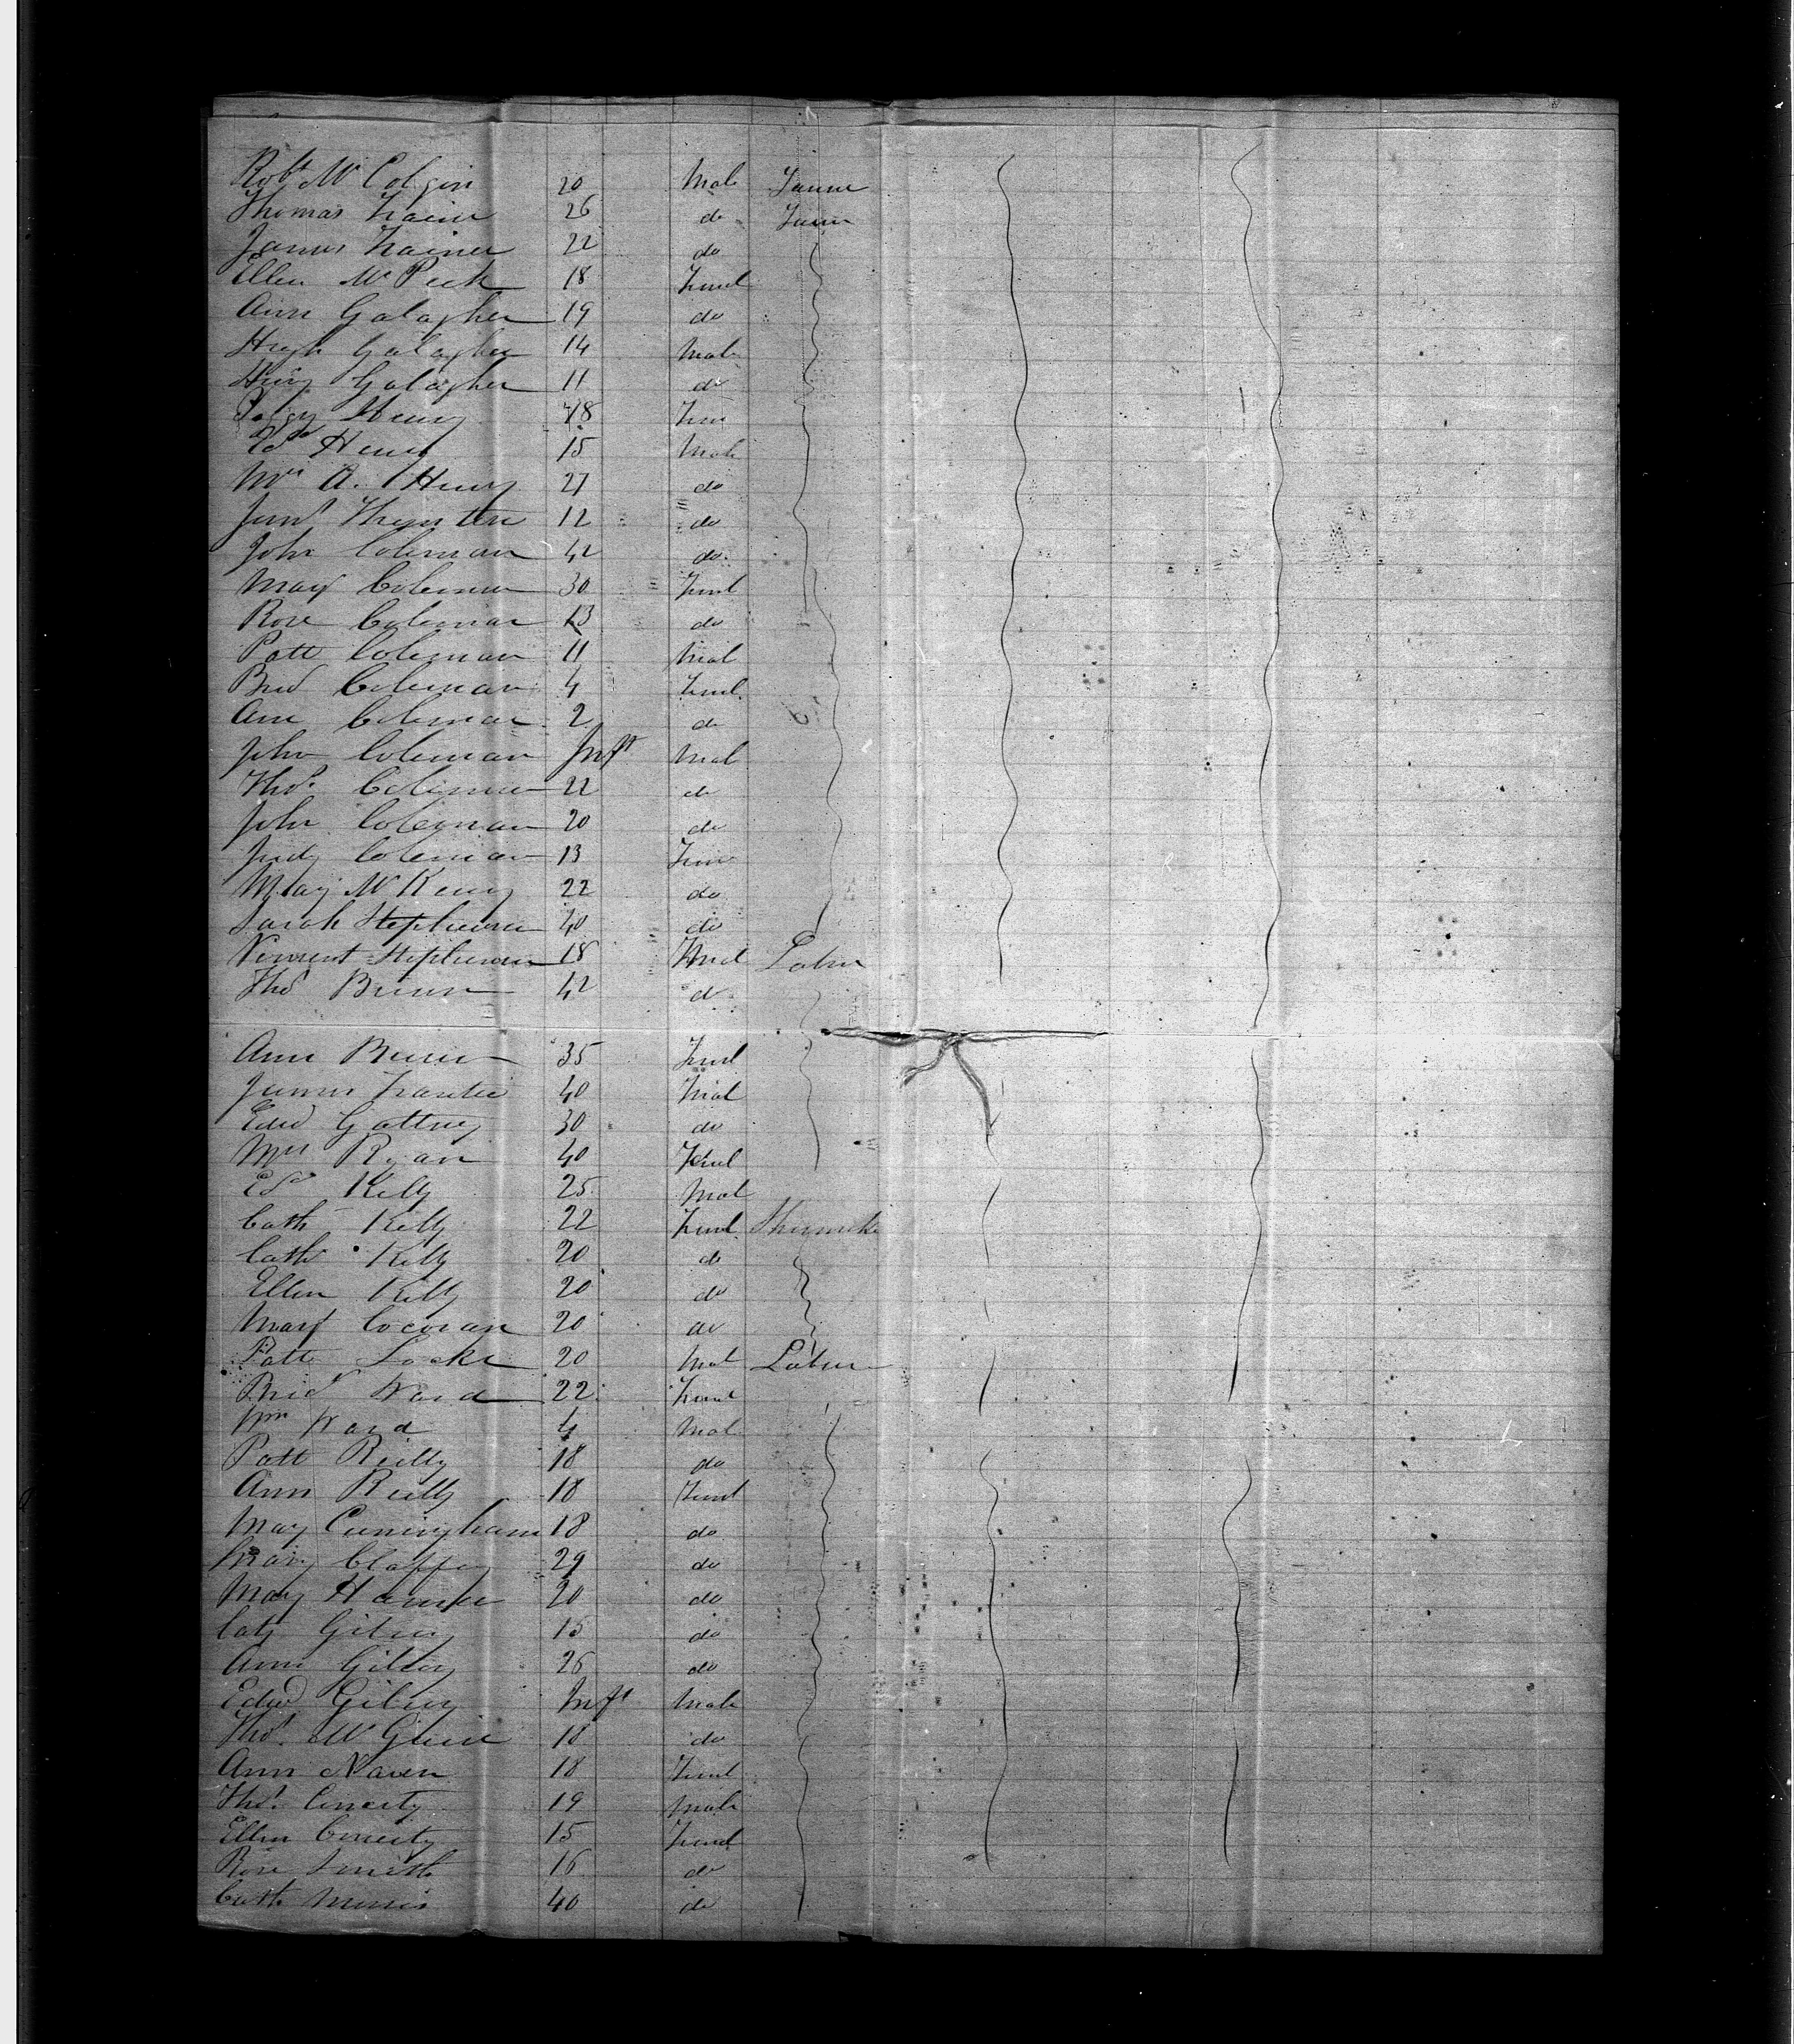 Robt McColgin 20 Male Farmr
Thomas Trainer 26 do Farmr
James Trainer 22 do
Ellen McPeek 18 Feml
Ann Galagher 19 do
Hugh Galagher 14 Male
Galagher 11 do
Peggy Henry 18 Fem
Ed Henry 15 Male
Mrs A. Henry 27 do
Thornton 12 do
John Coleman 42 do
Mary Coleman 30 Feml
Rose Coleman 13 do
Patt Coleman 11 Mal
Brid Coleman 4 Feml
Ann Coleman 2 do
John Coleman Inft Mal
Thos Coleman 22 do
John Coleman 20 do
Judy Coleman 13 Fem
Mary McKeny 22 do
Sarah Stephenson 40 do
Vincent Stephenson 18 Labr
Thos 42 do
Ann 35 Feml
James 40 Mal
Edwd Gattney 30 do
Mrs Ryan 40 Feml
Ed Kelly 25 Mal
Cath Kelly 22 Feml
Cath Kelly 20 do
Ellen Kelly 20 do
Mary Cocoran 20 do
Patt Locke 20 Mal Labr
Brid Ward 22 Feml
Wm Ward 4 Mal
Patt Reilly 18 do
Ann Reilly 18 Feml
Mary Cuningham 18 do
Mary Claffey 29 do
Mary 20 do
Caty Gilroy 15 do
Ann Gilroy 26 do
Edwd Gilroy Inft Male
Thos 18 do
Ann Naven 18 Feml
Thos Conerty 19 Male
Ellen Conerty 15 Feml
Rose Smith 16 do
Cath Morris 40 do